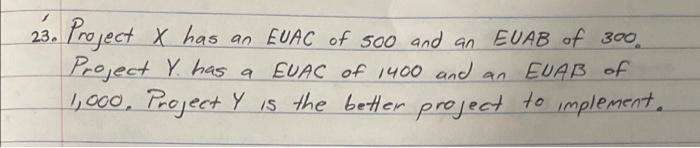 23. Project X has an EUAC of 500 and an EUAB of 300.
Project Y. has a EUAC of 1400 and an EUAB of
1,000. Project Y is the better project to implement.